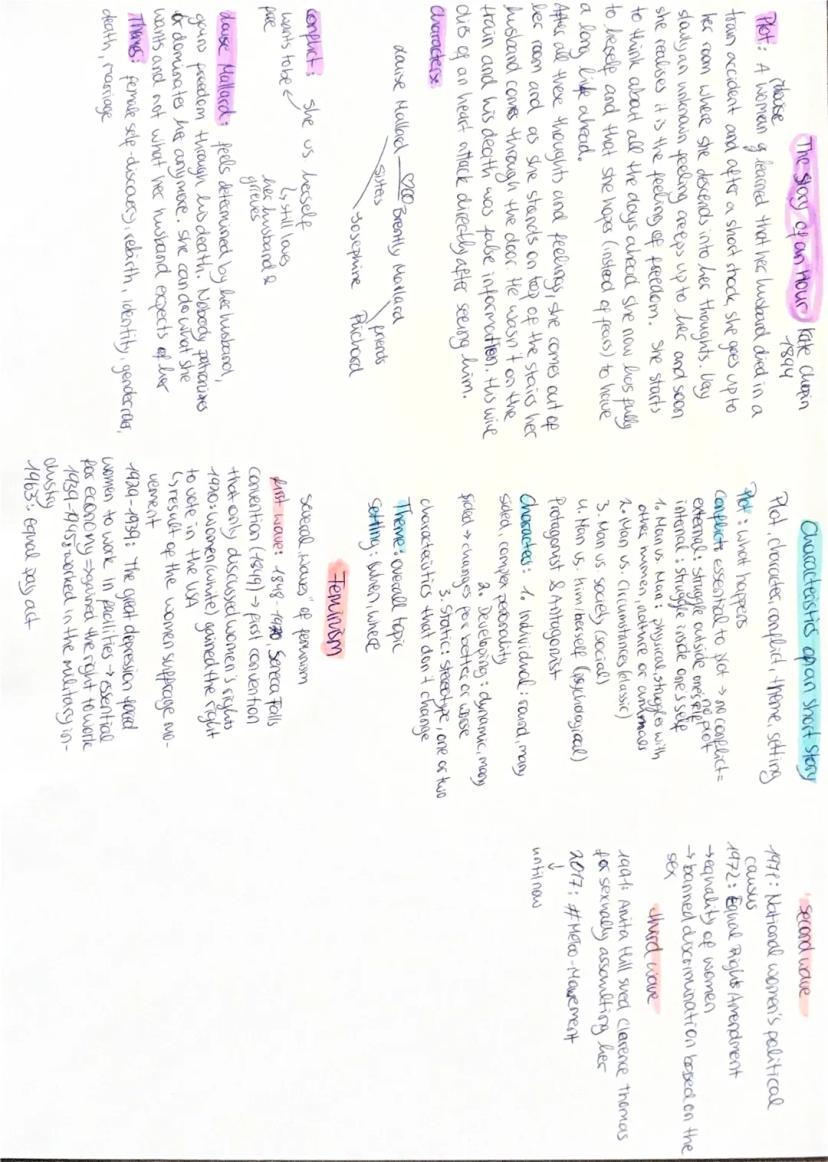 The Story of an Hour Kate Chopin
1894
Plot: A woman learned that her husband died in a
Louise
train accident and after a short shock, she goes up to
her room where she descends into her thoughts. Very
slowly an unknown feeling creeps up to her and soon
she realises it is the feeling of freedom. She starts
to think about all the days ahead she now has fully
to herself and that she hopes (instead of fears) to have
a long life ahead.
After all these thoughts and feelings, she comes out of
her room and as she stands on top of the stairs her
husband comes through the door. He wasn't on the
train and his death was false information. His wive
dies of an heart attack directly after seeing him.
Characters:
Louise Mallard Brently Mallard
sisters friends
Josephine Richard
Conflict: she vs herself
wants to be ↳ still loves
free her husband &
grieves
Louise Mallard: feels determined by her husband,
gains freedom through his death. Nobody patronizes
or dominates her anymore. She can do what she
wants and not what her husband expects of her
Themes: female self-discovery, rebirth, identity, gender roles,
death, marriage
Characteristics of an short story
Plot, character, conflict, theme, setting
Plot: what happens
Conflict: essential to plot → no conflict =
no plot
external: struggle outside one's self
internal: struggle inside one's self
1. Man vs. Man: physical, struggles with
other men, nature or animals
2. Man vs. Circumstances (classic)
3. Man vs. society (social)
4. Man vs. him/herself (psychological)
Protagonist & Antagonist
Character: 1. Individual: round, many
sided, complex personality
2. Developing: dynamic, many
sided → changes for better or worse
3. Static: stereotype, one or two
characteristics that don't change
Theme: overall topic
Setting: when, where
Feminism
Several „waves" of feminism
first wave: 1848-1920, Seneca Falls
Convention (1848) → first convention
that only discussed women's rights
1920: women (white) gained the right
to vote in the USA
↳ result of the women suffrage mo-
vement
1929-1939: The great depression forced
women to work in facilities → essential
for economy ⇒ gained the right to work
1939-1945: worked in the military in-
dustry
1963: Equal pay act
second wave
1971: National women's political
caucus
1972: Equal Rights Amendment
→ equality of women
→ banned discrimination based on the
sex
third wave
1991: Anita Hill sued Clarence Thomas
for sexually assaulting her
2017: #MeToo-Movement
↓
until now